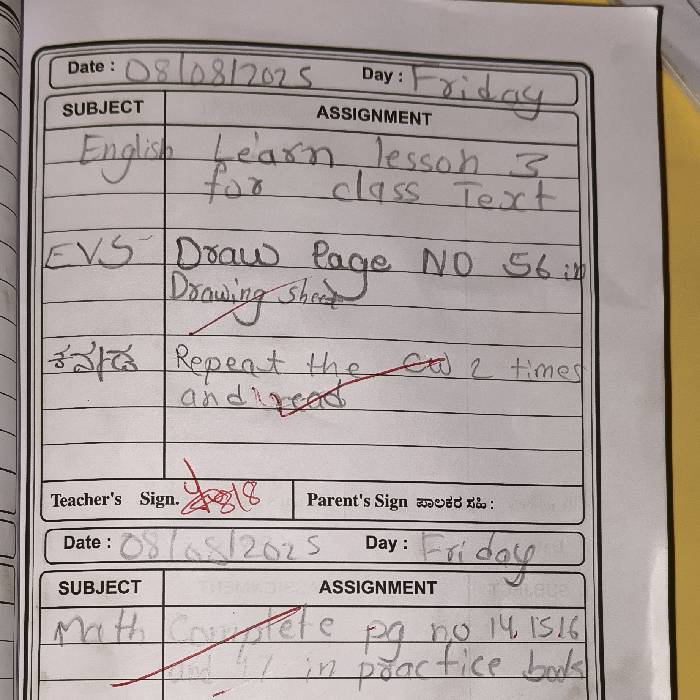 Date : 08/08/2025 Day : Friday
SUBJECT ASSIGNMENT
English Learn lesson 3
for class Text
EVS Draw Page NO 56 in
Drawing sheet
ಕನ್ನಡ Repeat the CW 2 times
and read
Teacher's Sign. 8/8 Parent's Sign ಪಾಲಕರ ಸಹಿ :
Date : 08/08/2025 Day : Friday
SUBJECT ASSIGNMENT
Math Complete pg no 14, 15 16
and 17 in practice book